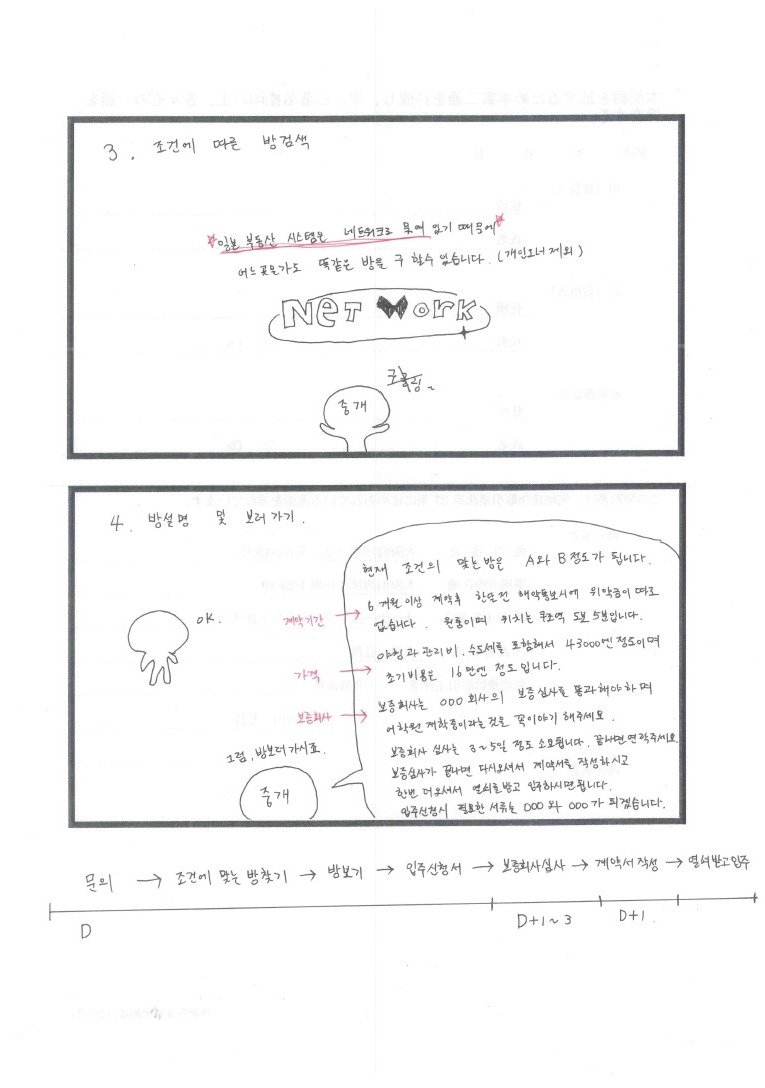 3. 조건에 따른 방검색
일본 부동산 시스템은 네트워크로 묶여 있기 때문에
어느곳을가도 똑같은 방을 구 할수 있습니다. (개인오너 제외)
NeT Work
중개
4. 방설명 및 보러가기.
OK.
현재 조건의 맞는방은 A와 B정도가 됩니다.
계약기간
6개월이상 계약후 한달전 해약통보시에 위약금이 따로
없습니다. 원룸이며 위치는 무조역 도보 5분입니다.
가격
야칭과 관리비, 수도세를 포함해서 43000엔 정도이며
초기비용은 16만엔 정도입니다.
보증회사
보증회사는 000회사의 보증심사를 통과해야하며
어학원 재학중이라는것은 꼭이야기 해주세요.
보증회사 심사는 3~5일 정도 소요됩니다. 끝나면연락주세요
보증심사가 끝나면 다시오셔서 계약서를 작성하시고
한번 더오셔서 열쇠를받고 입주하시면됩니다.
입주신청시 필요한 서류는 000와 000가 되겠습니다.
그럼, 방보러가시죠.
중개
문의 → 조건에 맞는 방찾기 → 방보기 → 입주신청서 → 보증회사심사 → 계약서작성 → 열쇠받고입주
D D+1~3 D+1.